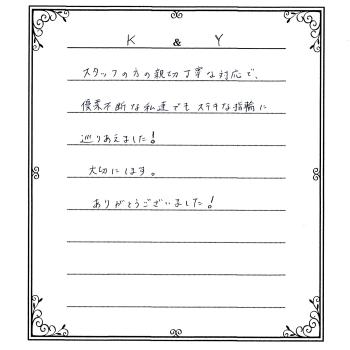 K & Y
スタッフの方の親切丁寧な対応で、
優柔不断な私達でもステキな指輪に
巡りあえました！
大切にします。
ありがとうございました！